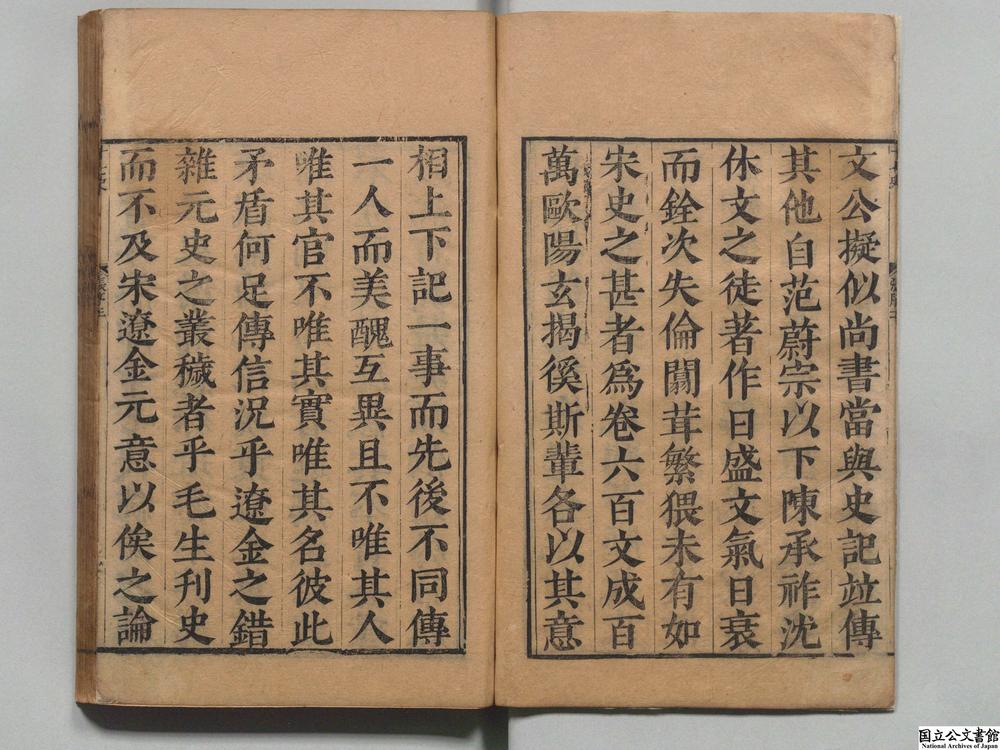 文公擬似尚書當與史記竝傳
其他自范蔚宗以下陳承祚沈
休文之徒著作日盛文氣日衰
而銓次失倫闒茸繁猥未有如
宋史之甚者爲卷六百文成百
萬歐陽玄揭徯斯輩各以其意
相上下記一事而先後不同傳
一人而美醜互異且不唯其人
唯其官不唯其實唯其名彼此
矛盾何足傳信況乎遼金之錯
雜元史之叢穢者乎毛生刋史
而不及宋遼金元意以俟之論
国立公文書館
National Archives of Japan